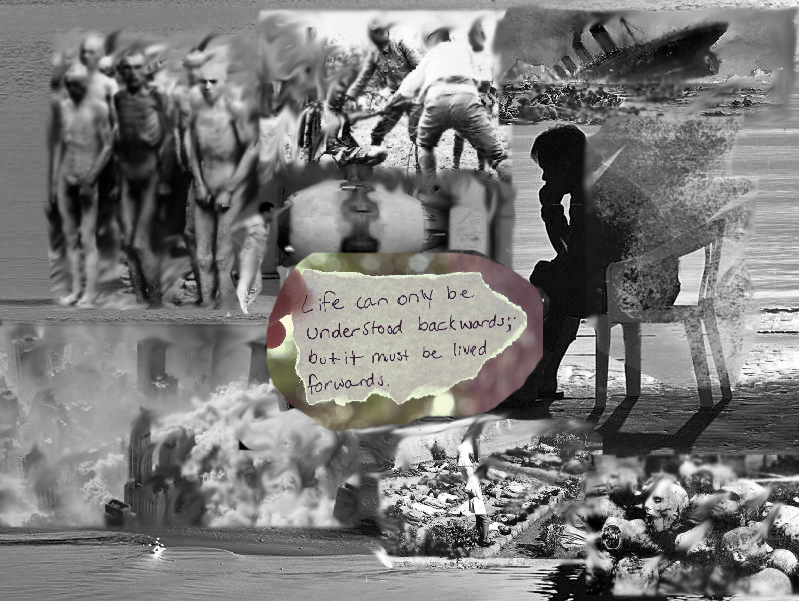 Life can only be
understood backwards;
but it must be lived
forwards.